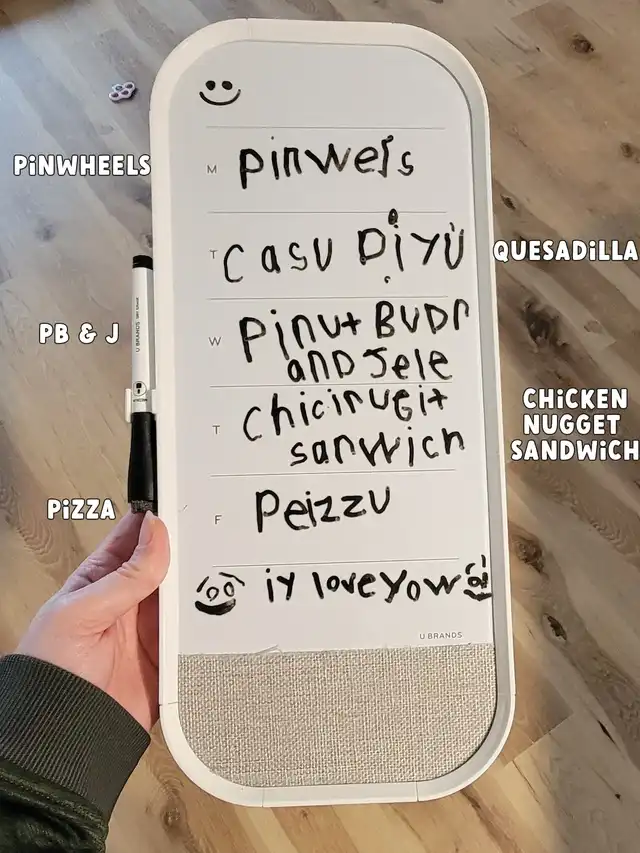 PINWHEELS
M pinwels
T casu Diyu
QUESADILLA
PB & J
U BRANDS
W Pinut BuDr
anD Jele
T chicinugit
sanwich
CHICKEN
NUGGET
SANDWICH
PIZZA
F Peizzu
iy love yow
U BRANDS